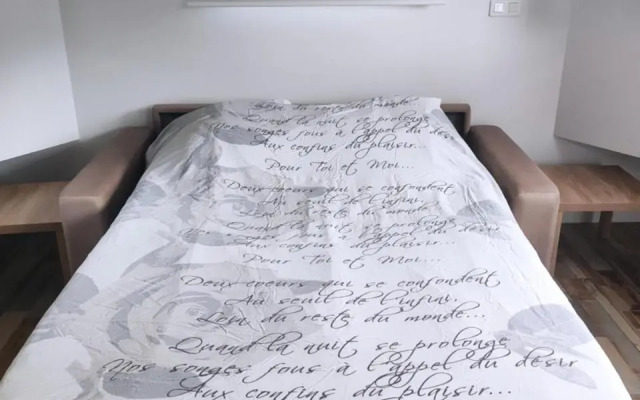 Loin du reste du monde
Quand la nuit se prolonge
Nos songes fous à l'appel du désir
Aux confins du plaisir...
Pour Toi et Moi...
Deux coeurs qui se confondent
Au seuil de l'infini.
Loin du reste du monde
Quand la nuit se prolonge
songes fous à l'appel du désir
Aux confins du plaisir...
Pour Toi et Moi...
Deux coeurs qui se confondent
Au seuil de l'infini.
Loin du reste du monde...
Quand la nuit se prolonge
Nos songes fous à l'appel du désir
Aux confins du plaisir...